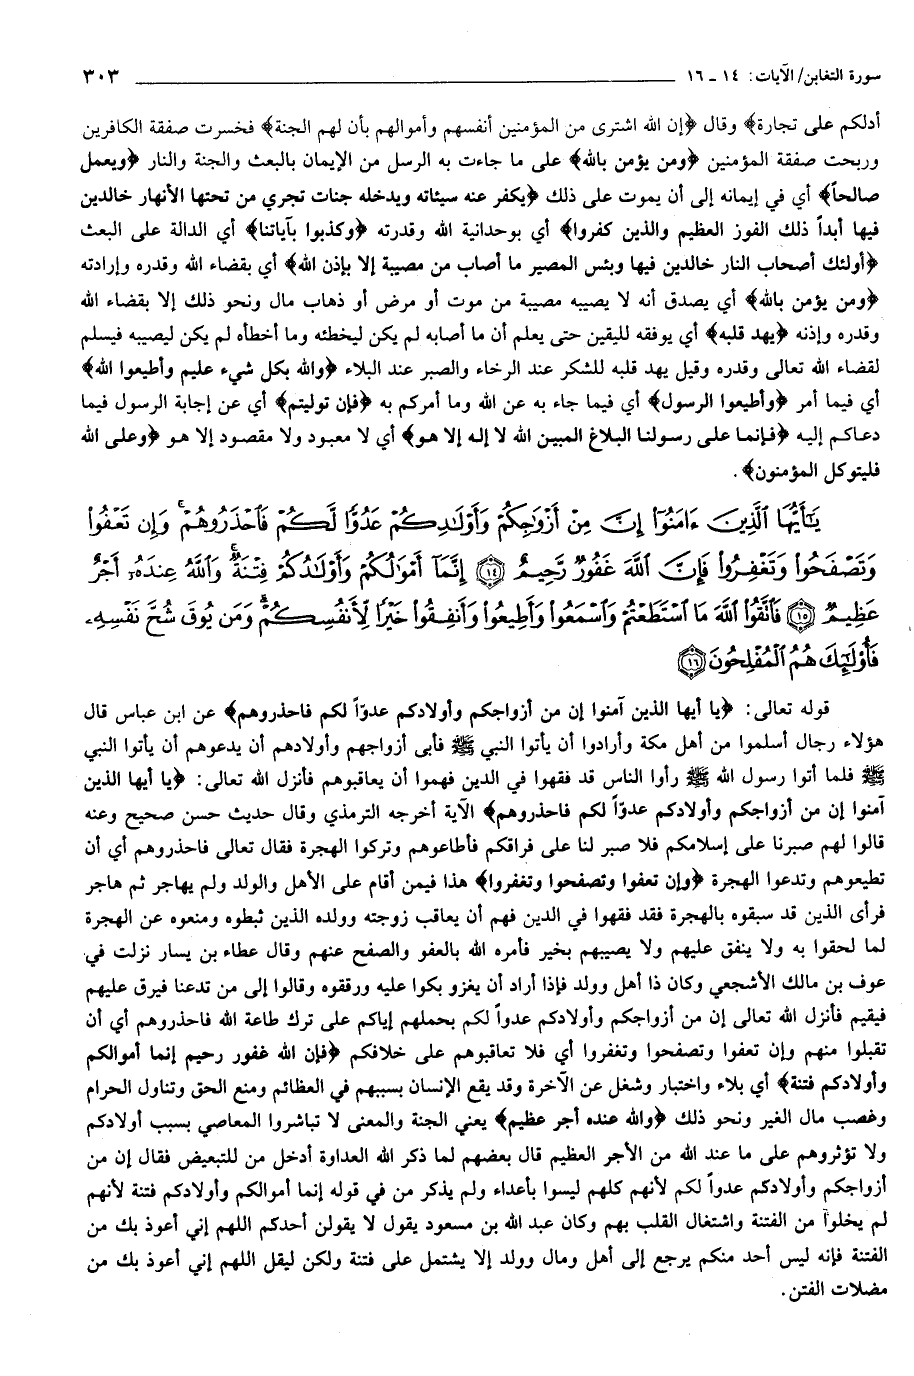 سورة التغابن/ الآيات: ١٤ - ١٦ ٣٠٣
أدلكم على تجارة﴾ وقال ﴿إن الله اشترى من المؤمنين أنفسهم وأموالهم بأن لهم الجنة﴾ فخسرت صفقة الكافرين
وربحت صفقة المؤمنين ﴿ومن يؤمن بالله﴾ على ما جاءت به الرسل من الإيمان بالبعث والجنة والنار ﴿ويعمل
صالحاً﴾ أي في إيمانه إلى أن يموت على ذلك ﴿يكفر عنه سيئاته ويدخله جنات تجري من تحتها الأنهار خالدين
فيها أبداً ذلك الفوز العظيم والذين كفروا﴾ أي بوحدانية الله وقدرته ﴿وكذبوا بآياتنا﴾ أي الدالة على البعث
﴿أولئك أصحاب النار خالدين فيها وبئس المصير ما أصاب من مصيبة إلا بإذن الله﴾ أي بقضاء الله وقدره وإرادته
﴿ومن يؤمن بالله﴾ أي يصدق أنه لا يصيبه مصيبة من موت أو مرض أو ذهاب مال ونحو ذلك إلا بقضاء الله
وقدره وإذنه ﴿يهد قلبه﴾ أي يوفقه لليقين حتى يعلم أن ما أصابه لم يكن ليخطئه وما أخطأه لم يكن ليصيبه فيسلم
لقضاء الله تعالى وقدره وقيل يهد قلبه للشكر عند الرخاء والصبر عند البلاء ﴿والله بكل شيء عليم وأطيعوا الله﴾
أي فيما أمر ﴿وأطيعوا الرسول﴾ أي فيما جاء به عن الله وما أمركم به ﴿فإن توليتم﴾ أي عن إجابة الرسول فيما
دعاكم إليه ﴿فإنما على رسولنا البلاغ المبين الله لا إله إلا هو﴾ أي لا معبود ولا مقصود إلا هو ﴿وعلى الله
فليتوكل المؤمنون﴾.
يَٰٓأَيُّهَا ٱلَّذِينَ ءَامَنُوٓا۟ إِنَّ مِنْ أَزْوَٰجِكُمْ وَأَوْلَٰدِكُمْ عَدُوًّا لَّكُمْ فَٱحْذَرُوهُمْ ۚ وَإِن تَعْفُوا۟
وَتَصْفَحُوا۟ وَتَغْفِرُوا۟ فَإِنَّ ٱللَّهَ غَفُورٌ رَّحِيمٌ ﴿١٤﴾ إِنَّمَآ أَمْوَٰلُكُمْ وَأَوْلَٰدُكُمْ فِتْنَةٌ ۚ وَٱللَّهُ عِندَهُۥٓ أَجْرٌ
عَظِيمٌ ﴿١٥﴾ فَٱتَّقُوا۟ ٱللَّهَ مَا ٱسْتَطَعْتُمْ وَٱسْمَعُوا۟ وَأَطِيعُوا۟ وَأَنفِقُوا۟ خَيْرًا لِّأَنفُسِكُمْ ۗ وَمَن يُوقَ شُحَّ نَفْسِهِۦ
فَأُو۟لَٰٓئِكَ هُمُ ٱلْمُفْلِحُونَ ﴿١٦﴾
قوله تعالى: ﴿يا أيها الذين آمنوا إن من أزواجكم وأولادكم عدوّاً لكم فاحذروهم﴾ عن ابن عباس قال
هؤلاء رجال أسلموا من أهل مكة وأرادوا أن يأتوا النبي ﷺ فأبى أزواجهم وأولادهم أن يدعوهم أن يأتوا النبي
ﷺ فلما أتوا رسول الله ﷺ رأوا الناس قد فقهوا في الدين فهموا أن يعاقبوهم فأنزل الله تعالى: ﴿يا أيها الذين
آمنوا إن من أزواجكم وأولادكم عدوّاً لكم فاحذروهم﴾ الآية أخرجه الترمذي وقال حديث حسن صحيح وعنه
قالوا لهم صبرنا على إسلامكم فلا صبر لنا على فراقكم فأطاعوهم وتركوا الهجرة فقال تعالى فاحذروهم أي أن
تطيعوهم وتدعوا الهجرة ﴿وإن تعفوا وتصفحوا وتغفروا﴾ هذا فيمن أقام على الأهل والولد ولم يهاجر ثم هاجر
فرأى الذين قد سبقوه بالهجرة فقد فقهوا في الدين فهم أن يعاقب زوجته وولده الذين ثبطوه ومنعوه عن الهجرة
لما لحقوا به ولا ينفق عليهم ولا يصيبهم بخير فأمره الله بالعفو والصفح عنهم وقال عطاء بن يسار نزلت في
عوف بن مالك الأشجعي وكان ذا أهل وولد فإذا أراد أن يغزو بكوا عليه ورققوه وقالوا إلى من تدعنا فيرق عليهم
فيقيم فأنزل الله تعالى إن من أزواجكم وأولادكم عدواً لكم بحملهم إياكم على ترك طاعة الله فاحذروهم أي أن
تقبلوا منهم وإن تعفوا وتصفحوا وتغفروا أي فلا تعاقبوهم على خلافكم ﴿فإن الله غفور رحيم إنما أموالكم
وأولادكم فتنة﴾ أي بلاء واختبار وشغل عن الآخرة وقد يقع الإنسان بسببهم في العظائم ومنع الحق وتناول الحرام
وغصب مال الغير ونحو ذلك ﴿والله عنده أجر عظيم﴾ يعني الجنة والمعنى لا تباشروا المعاصي بسبب أولادكم
ولا تؤثروهم على ما عند الله من الأجر العظيم قال بعضهم لما ذكر الله العداوة أدخل من للتبعيض فقال إن من
أزواجكم وأولادكم عدواً لكم لأنهم كلهم ليسوا بأعداء ولم يذكر من في قوله إنما أموالكم وأولادكم فتنة لأنهم
لم يخلوا من الفتنة واشتغال القلب بهم وكان عبد الله بن مسعود يقول لا يقولن أحدكم اللهم إني أعوذ بك من
الفتنة فإنه ليس أحد منكم يرجع إلى أهل ومال وولد إلا يشتمل على فتنة ولكن ليقل اللهم إني أعوذ بك من
مضلات الفتن.